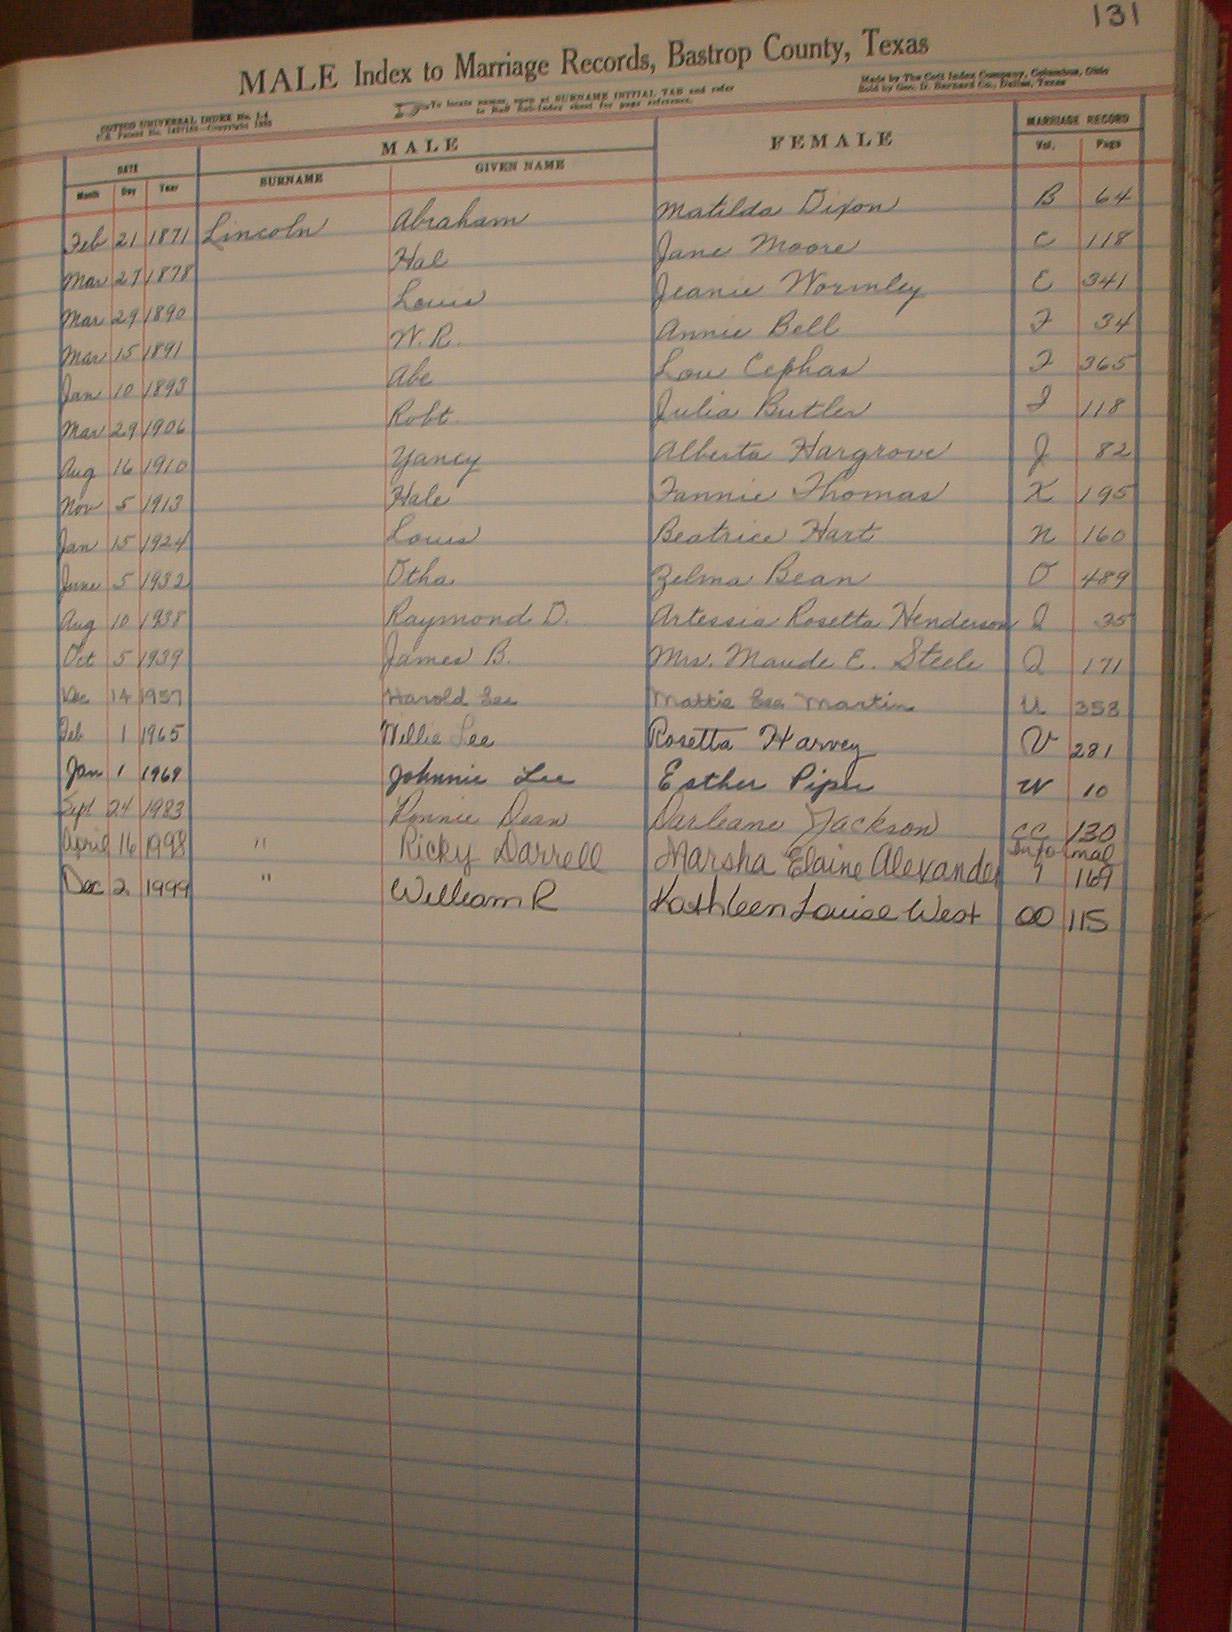 131
MALE Index to Marriage Records, Bastrop County, Texas
COTTOS UNIVERSAL INDEX No. 1-4 To locate names, open at SURNAME INITIAL TAB and refer Made by The Cott Index Company, Columbus, Ohio
U.S. Patent No. Copyright to Buff Sub-Index sheet for page reference. Sold by Geo. D. Barnard Co., Dallas, Texas
DATE MALE FEMALE MARRIAGE RECORD
Month Day Year SURNAME GIVEN NAME Vol. Page
Feb 21 1871 Lincoln Abraham Matilda Dixon B 64
Mar 27 1878 Hal Jane Moore C 118
Mar 29 1890 Louis Jeanie Wormley E 341
Mar 15 1891 W. R. Annie Bell F 34
Jan 10 1893 Abe Lou Cephas F 365
Mar 29 1906 Robt. Julia Butler I 118
Aug 16 1910 Yancy Alberta Hargrove J 82
Nov 5 1913 Hale Fannie Thomas K 195
Jan 15 1924 Louis Beatrice Hart N 160
June 5 1932 Otha Zelma Bean O 489
Aug 10 1938 Raymond D. Artessia Rosetta Henderson Q 35
Oct 5 1939 James B. Mrs. Maude E. Steele Q 171
Dec 14 1957 Harold Lee Mattie Lee Martin U 353
Feb 1 1965 Willie Lee Rosetta Harvey V 281
Jan 1 1969 Johnnie Lee Esther Piper W 10
Sept 24 1983 Ronnie Dean Darleane Jackson CC 130
April 16 1998 " Ricky Darrell Marsha Elaine Alexander Informal 1 169
Dec 2 1999 " William R Kathleen Louise West OO 115